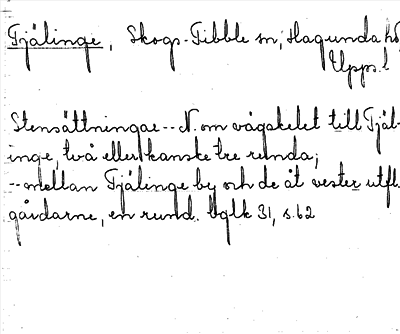 Fjälinge, Skogs-Tibble sn; Hagunda hd
Upps. l
Stensättningar -- N. om vägskelet till Fjäl-
inge, två eller kanske tre runda;
-- mellan Fjälinge by och de åt vester utfl.
gårdarne, en rund. Uglk 31, s. 62